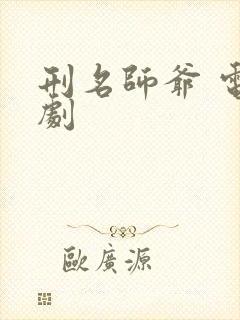 刑名師爺 電
劇
歐廣源